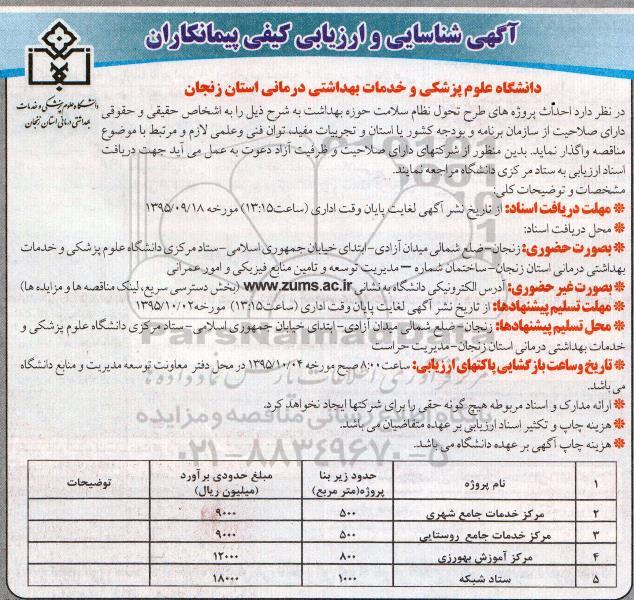 آگهی شناسایی و ارزیابی کیفی پیمانکاران
دانشگاه علوم پزشکی و خدمات بهداشتی درمانی استان زنجان
دانشگاه علوم پزشکی و خدمات
بهداشتی درمانی استان زنجان
در نظر دارد احداث پروژه های طرح تحول نظام سلامت حوزه بهداشت به شرح ذیل را به اشخاص حقیقی و حقوقی
دارای صلاحیت از سازمان برنامه و بودجه کشور یا استان و تجربیات مفید، توان فنی وعلمی لازم و مرتبط با موضوع
مناقصه واگذار نماید. بدین منظور از شرکتهای دارای صلاحیت و ظرفیت آزاد دعوت به عمل می آید جهت دریافت
اسناد ارزیابی به ستاد مرکزی دانشگاه مراجعه نمایند.
مشخصات و توضیحات کلی:
❋ مهلت دریافت اسناد: از تاریخ نشر آگهی لغایت پایان وقت اداری (ساعت۱۳:۱۵) مورخه ۱۳۹۵/۰۹/۱۸
❋ محل دریافت اسناد:
❋ بصورت حضوری: زنجان-ضلع شمالی میدان آزادی-ابتدای خیابان جمهوری اسلامی-ستاد مرکزی دانشگاه علوم پزشکی و خدمات
بهداشتی درمانی استان زنجان-ساختمان شماره ۱- مدیریت توسعه و تامین منابع فیزیکی و امور عمرانی
❋ بصورت غیر حضوری: آدرس الکترونیکی دانشگاه به نشانی www.zums.ac.ir (بخش دسترسی سریع، لینک مناقصه ها و مزایده ها)
❋ مهلت تسلیم پیشنهادها: از تاریخ نشر آگهی لغایت پایان وقت اداری (ساعت۱۳:۱۵) مورخه ۱۳۹۵/۱۰/۰۲
❋ محل تسلیم پیشنهادها: زنجان-ضلع شمالی میدان آزادی- ابتدای خیابان جمهوری اسلامی-ستاد مرکزی دانشگاه علوم پزشکی و
خدمات بهداشتی درمانی استان زنجان-مدیریت حراست
❋ تاریخ وساعت بازگشایی پاکتهای ارزیابی: ساعت ۸:۰۰ صبح مورخه ۱۳۹۵/۱۰/۰۴ در محل دفتر معاونت توسعه مدیریت و منابع دانشگاه
می باشد.
❋ ارائه مدارک و اسناد مربوطه هیچ گونه حقی را برای شرکتها ایجاد نخواهد کرد.
❋ هزینه چاپ و تکثیر اسناد ارزیابی بر عهده متقاضیان می باشد.
❋ هزینه چاپ آگهی بر عهده دانشگاه می باشد.
پایگاه اطلاع رسانی مناقصه و مزایده
۰۲۱-۸۸۳۴۹۶۷۰-۵
۱ نام پروژه حدود زیر بنا پروژه(متر مربع) مبلغ حدودی برآورد (میلیون ریال) توضیحات
۲ مرکز خدمات جامع شهری ۵۰۰ ۹۰۰۰
۳ مرکز خدمات جامع روستایی ۵۰۰ ۹۰۰۰
۴ مرکز آموزش بهورزی ۸۰۰ ۱۲۰۰۰
۵ ستاد شبکه ۱۰۰۰ ۱۸۰۰۰